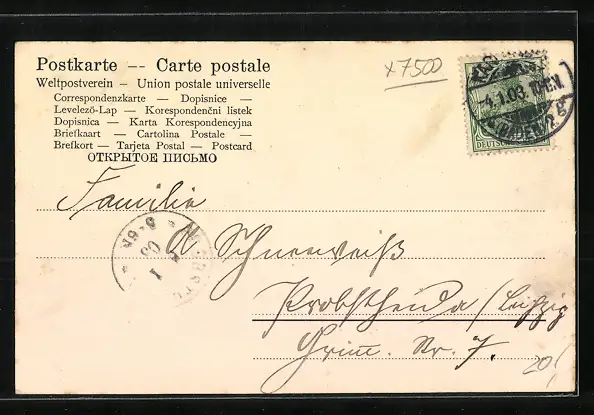 Postkarte -- Carte postale
x7500
Weltpostverein — Union postale universelle
Correspondenzkarte — Dopisnice —
Levelező-Lap — Korespondenční listek
Dopisnica — Karta Korespondencyjna
Briefkaart — Cartolina Postale —
Brefkort — Tarjeta Postal — Postcard
ОТКРЫТОЕ ПИСЬМО
4.1.03. 10-11.V.
DEUTSCH
Familie
A Schneeweiß
Probstheida / Leipzig
Grim. Str. 7.
20/